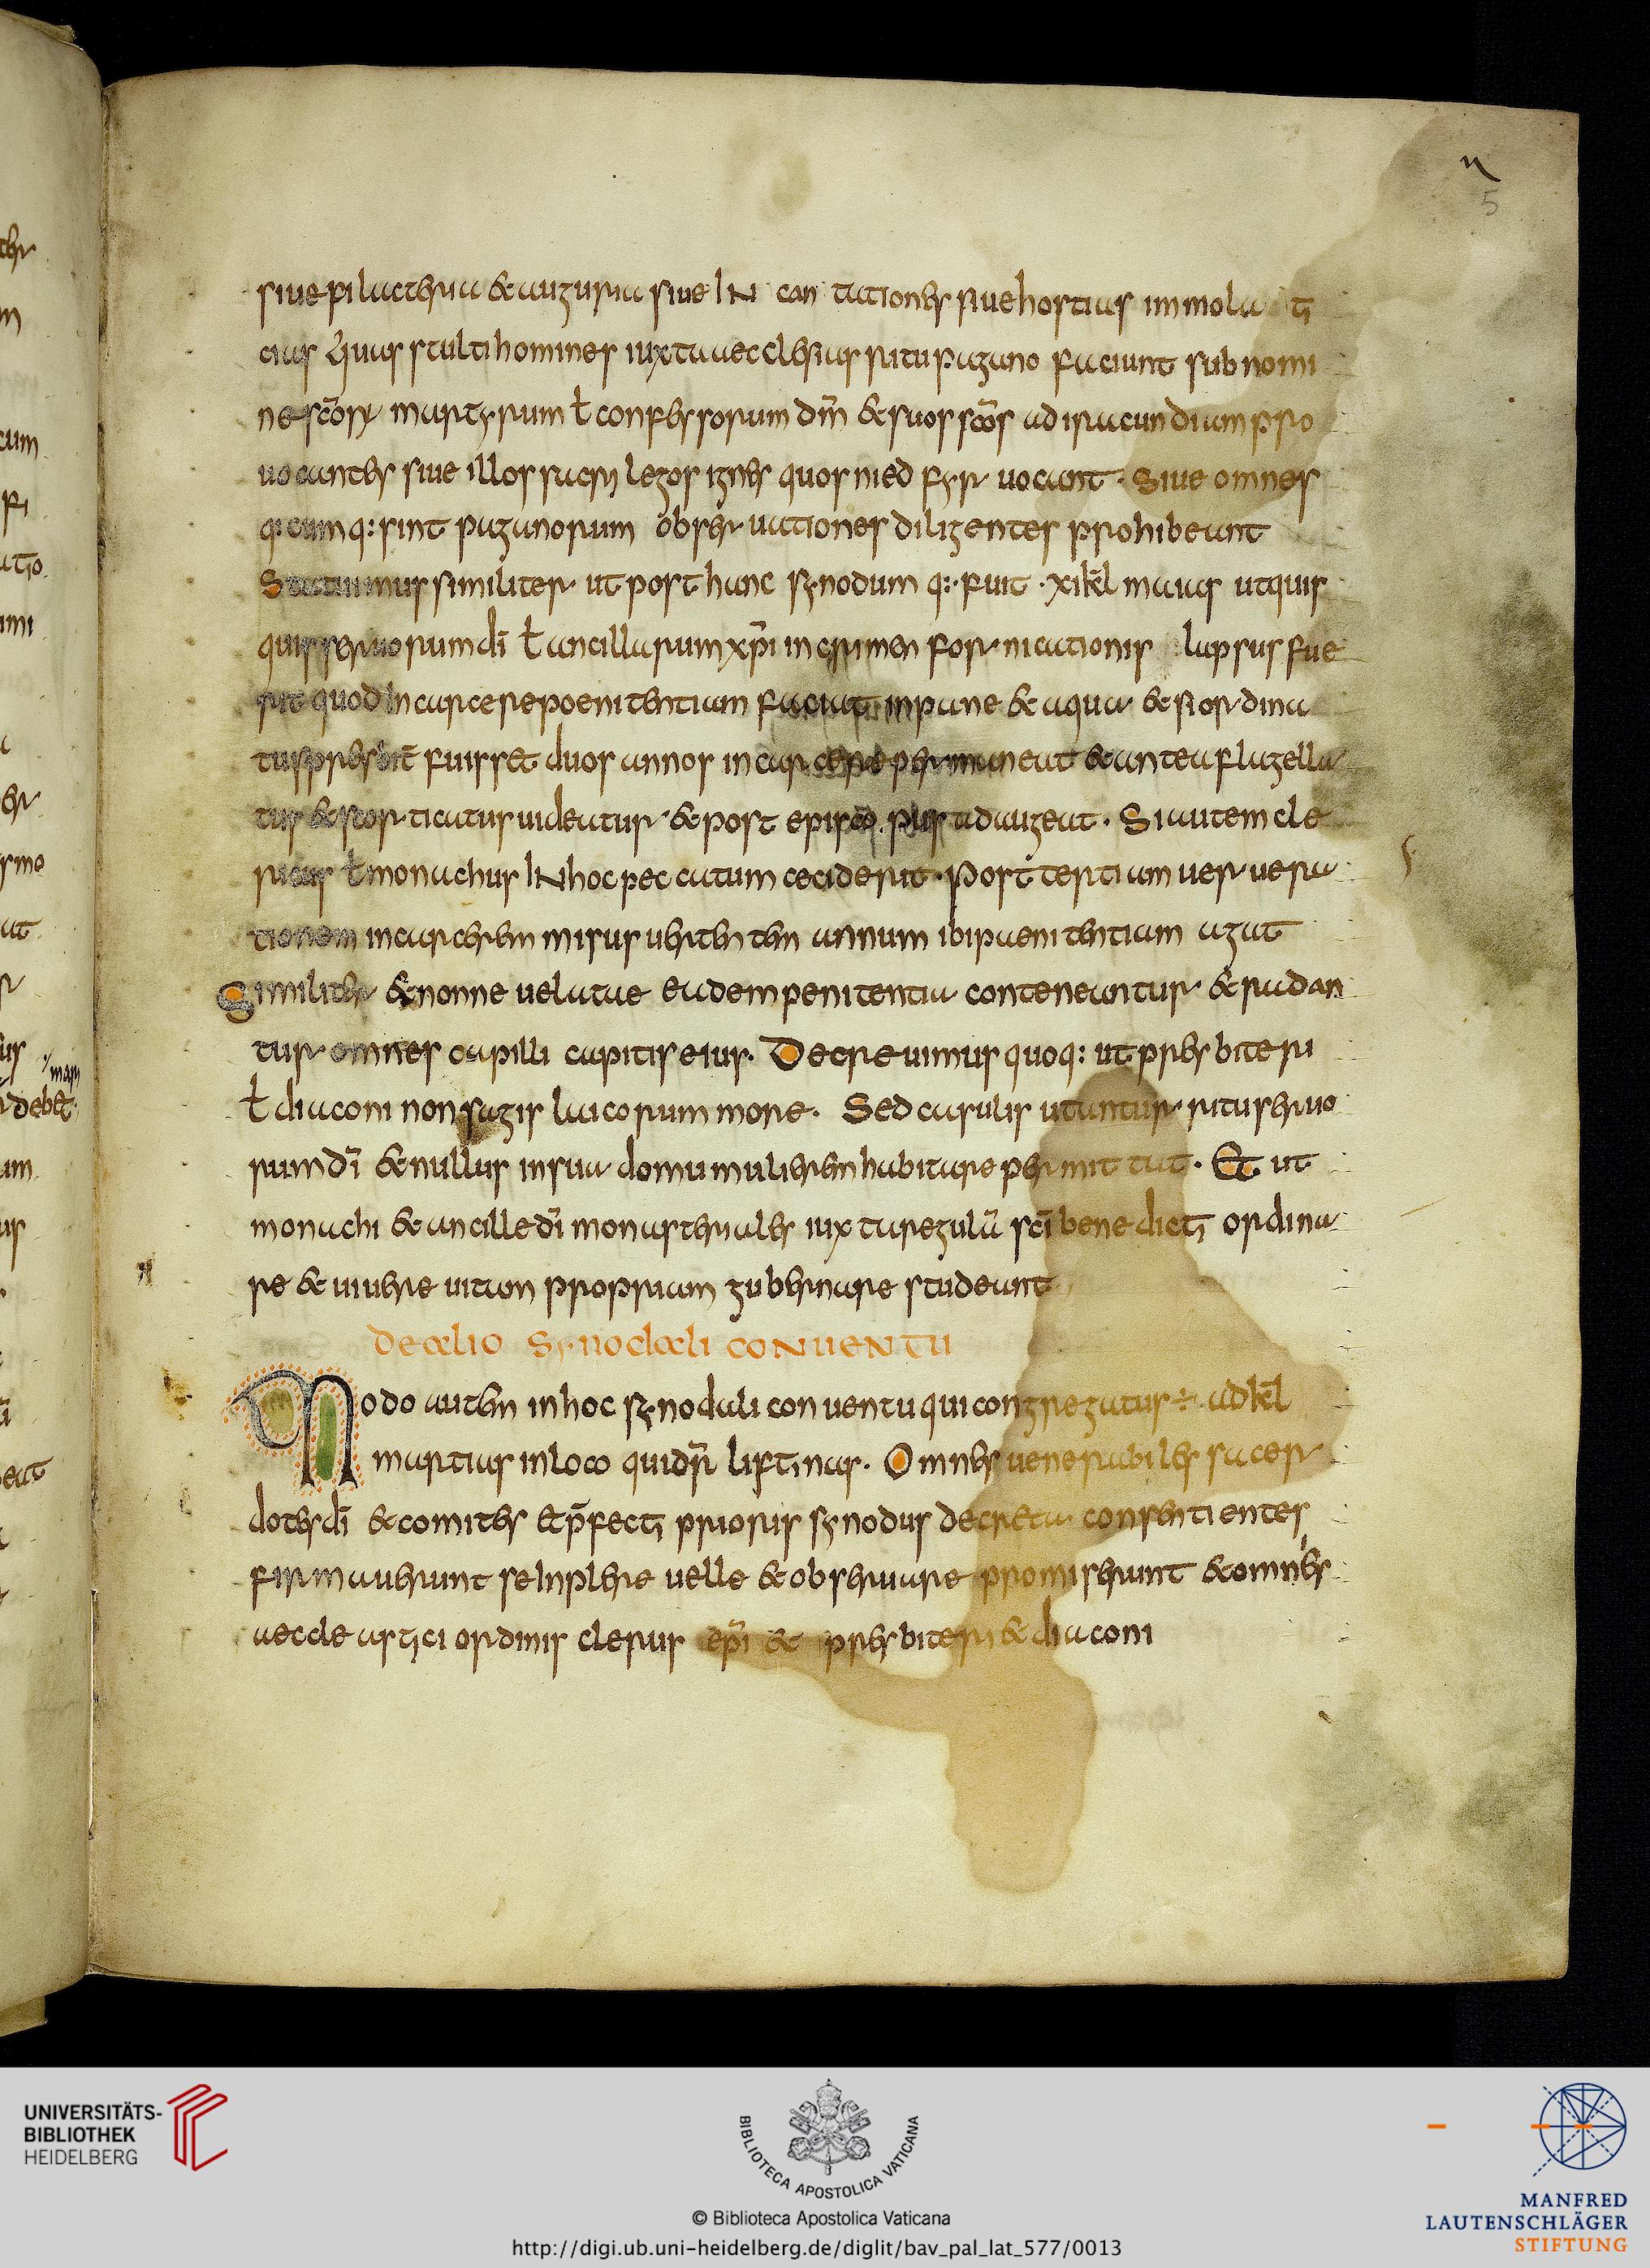 5
siue pilacthria & auguria siue IN can tationes siue hostias immola ti
cias quas stulti homines iuxta aecclesias ritu pagano faciunt sub nomi
ne scōrum martyrum ł confessorum dm̄ & suos scōs ad iracundiam pro
uocantes siue illos sacrilegos ignes quos nied fyr uocant · Siue omnes
q: cumq: sint paganorum obseruationes diligentes prohibeant
Statuimus similiter ut post hanc synodum q: fuit · xi kl̄ maias ut quis
quis seruorum dī ł ancillarum xp̄i in crimen fornicationis lapsus fue
rit quod In carcere poenitentiam faciat in pane & aqua & si ordina
tus presbit̄ fuisset duos annos in carcere permaneat & antea flagella
tus & scorticatus uideatur & post episco pus adaugeat · Si autem cle
ricus ł monachus IN hoc peccatum ceciderit · Post tertiam ueruera
tionem in carcerem misus uertentem annum ibi paenitentiam agat
Similiter & nonne uelatae eadem penitentia conteneantur & radan
tur omnes capilli capitis eius · Decreuimus quoq: ut presbiteri
ł diaconi non sagis laicorum more · Sed casulis utantur ritu seruo
rum dī & nullus in sua domu mulierem habitare permittat · Et ut
monachi & ancille dī monasteriales iuxta regulā scī benedicti ordina
re & uiuere uitam propriam gubernare studeant
De alio synodali conuentu
Modo autem in hoc synodali conuentu qui congregatus ÷ ad kl̄
martias in loco qui dr̄ liftinas · Omnes uenerabiles sacer
dotes dī & comites et p̄fecti prioris synodus decreta consentientes
firmauerunt se Inplere uelle & obseruare promiserunt & omnes
aeccleastici ordinis clerus ep̄i & presbiteri & diaconi
UNIVERSITÄTS-
BIBLIOTHEK
HEIDELBERG
BIBLIOTECA APOSTOLICA VATICANA
© Biblioteca Apostolica Vaticana
http://digi.ub.uni-heidelberg.de/diglit/bav_pal_lat_577/0013
MANFRED
LAUTENSCHLÄGER
STIFTUNG